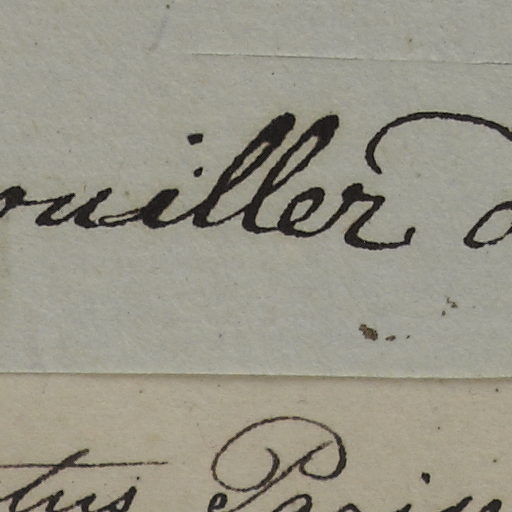 ouiller d
tus Parin